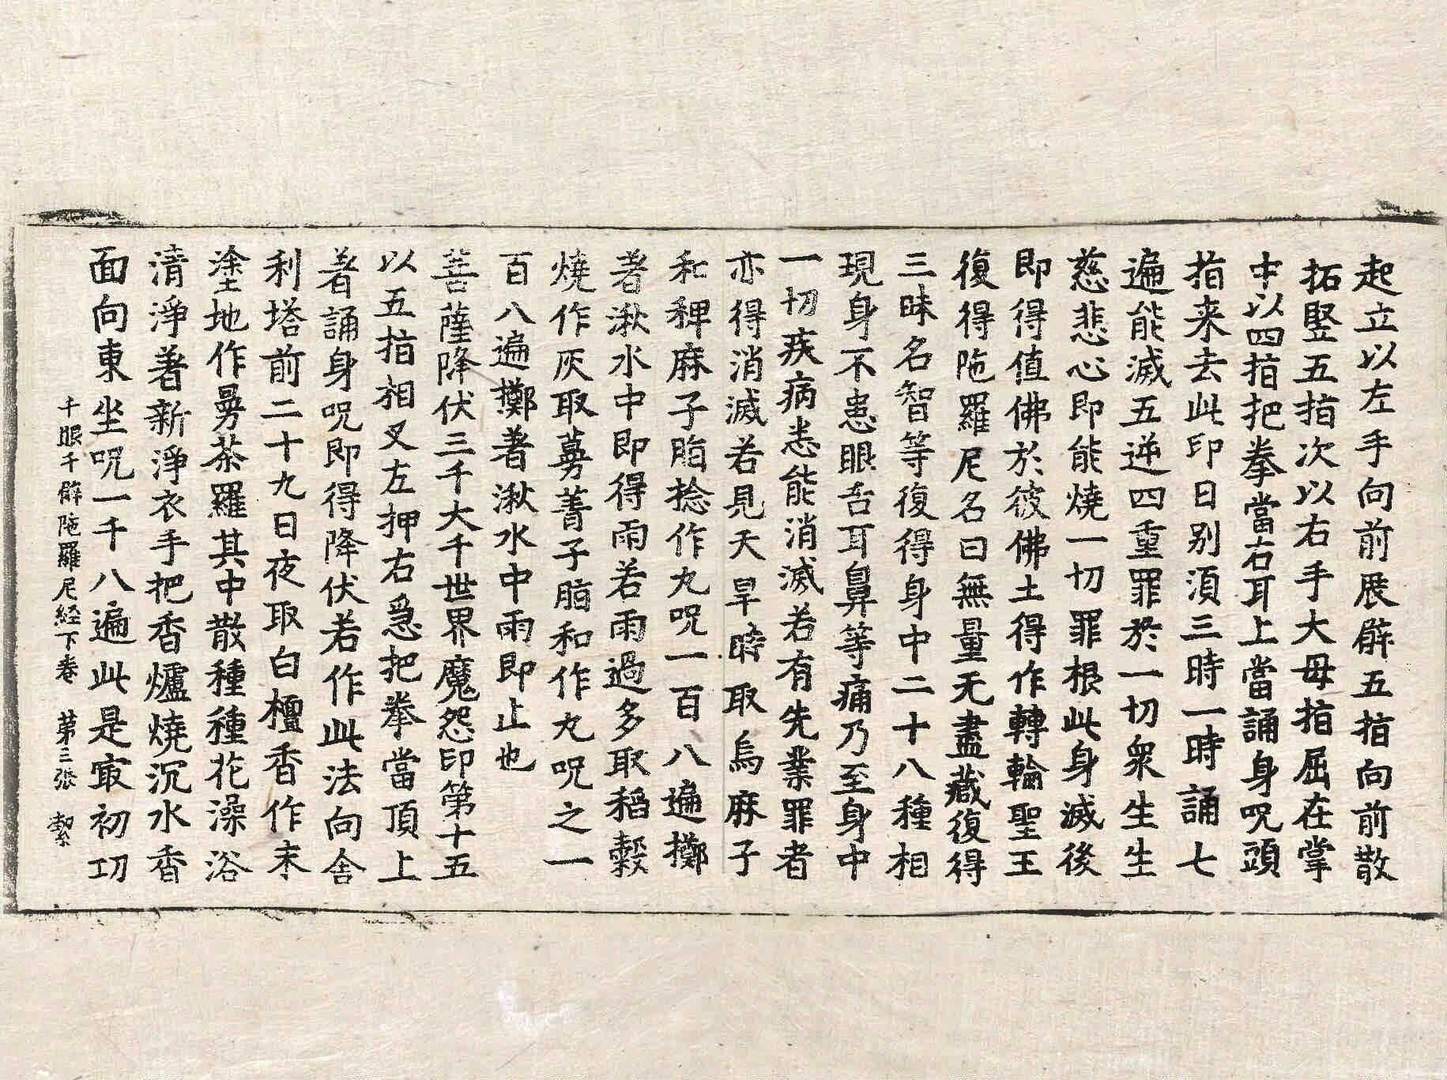 起立以左手向前展臂五指向前散
拓竪五指次以右手大母指屈在掌
中以四指把拳當右耳上當誦身呪頭
指来去此印日别湏三時一時誦七
遍能滅五逆四重罪於一切衆生生
慈悲心即能燒一切罪根此身滅後
即得值佛於彼佛土得作轉輪聖王
復得陁羅尼名曰無量无盡藏復得
三昧名智等復得身中二十八種相
現身不患眼舌耳鼻等痛乃至身中
一切疾病悉能消滅若有先業罪者
亦得消滅若見天旱時取烏麻子
和稗麻子脂捻作丸呪一百八遍擲
著湫水中即得雨若雨過多取稻穀
燒作灰取蔓菁子脂和作丸呪之一
百八遍擲著湫水中雨即止也
菩薩降伏三千大千世界魔怨印第十五
以五指相叉左押右急把拳當頂上
著誦身呪即得降伏若作此法向舍
利塔前二十九日夜取白檀香作末
塗地作曼茶羅其中散種種花澡浴
清淨著新淨衣手把香爐燒沉水香
面向東坐呪一千八遍此是㝡初功
千眼千臂陁羅尼経下卷 第三張 絜